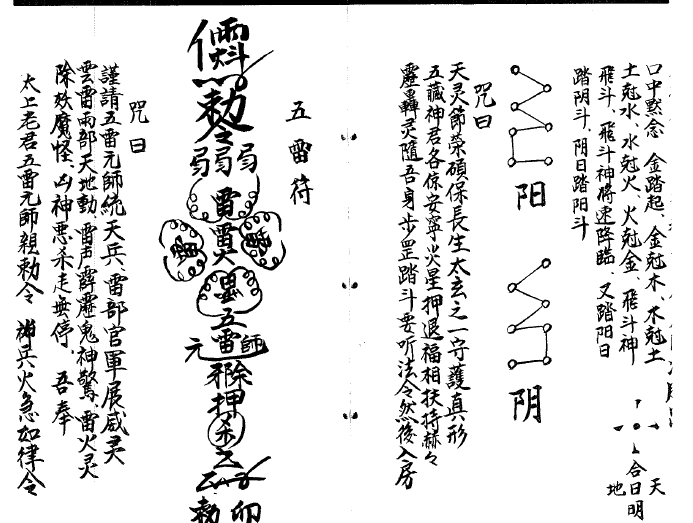 口中默念 金踏起、金尅木、木尅土
土尅水、水尅火、火尅金、飛斗神
飛斗、飛斗神將速降臨、又踏阳日
踏阴斗、阴日踏阳斗
天
合日明
地
阳
阴
咒曰
天灵節荣碩保長生太玄之一守護真形
五藏神君各保安寧火星押退福相扶持赫々
靂轟灵隨吾身步罡踏斗要听法令然後入房
五雷符
勅令
弱弱弱
雷
五雷
元師
押
勅
卯
咒曰
謹請五雷元師統天兵、雷部官軍展威灵
雲雷雨部天地動、雷声霹靂鬼神驚、雷火灵
除妖魔怪、凶神悪杀走無停、吾奉
太上老君五雷元師親勅令 神兵火急如律令